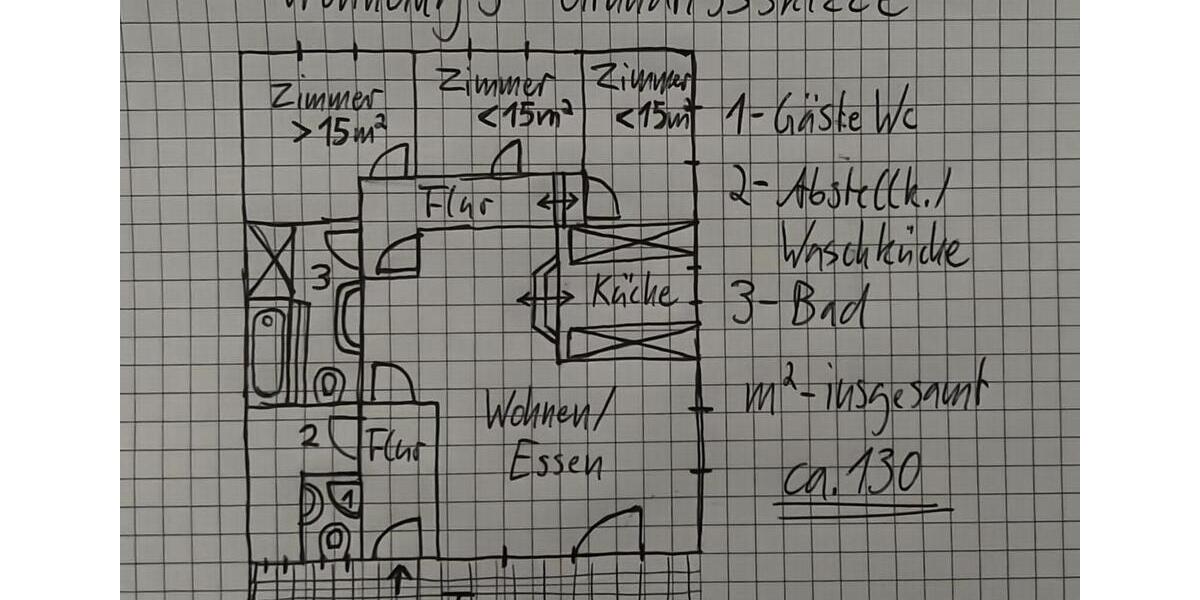 Zimmer
> 15m²
Zimmer
< 15m²
Zimmer
< 15m²
1 - Gäste Wc
2 - Abstellk. /
Waschküche
Flur
3
Küche
3 - Bad
m² - insgesamt
ca. 130
Wohnen /
Essen
2
Flur
1